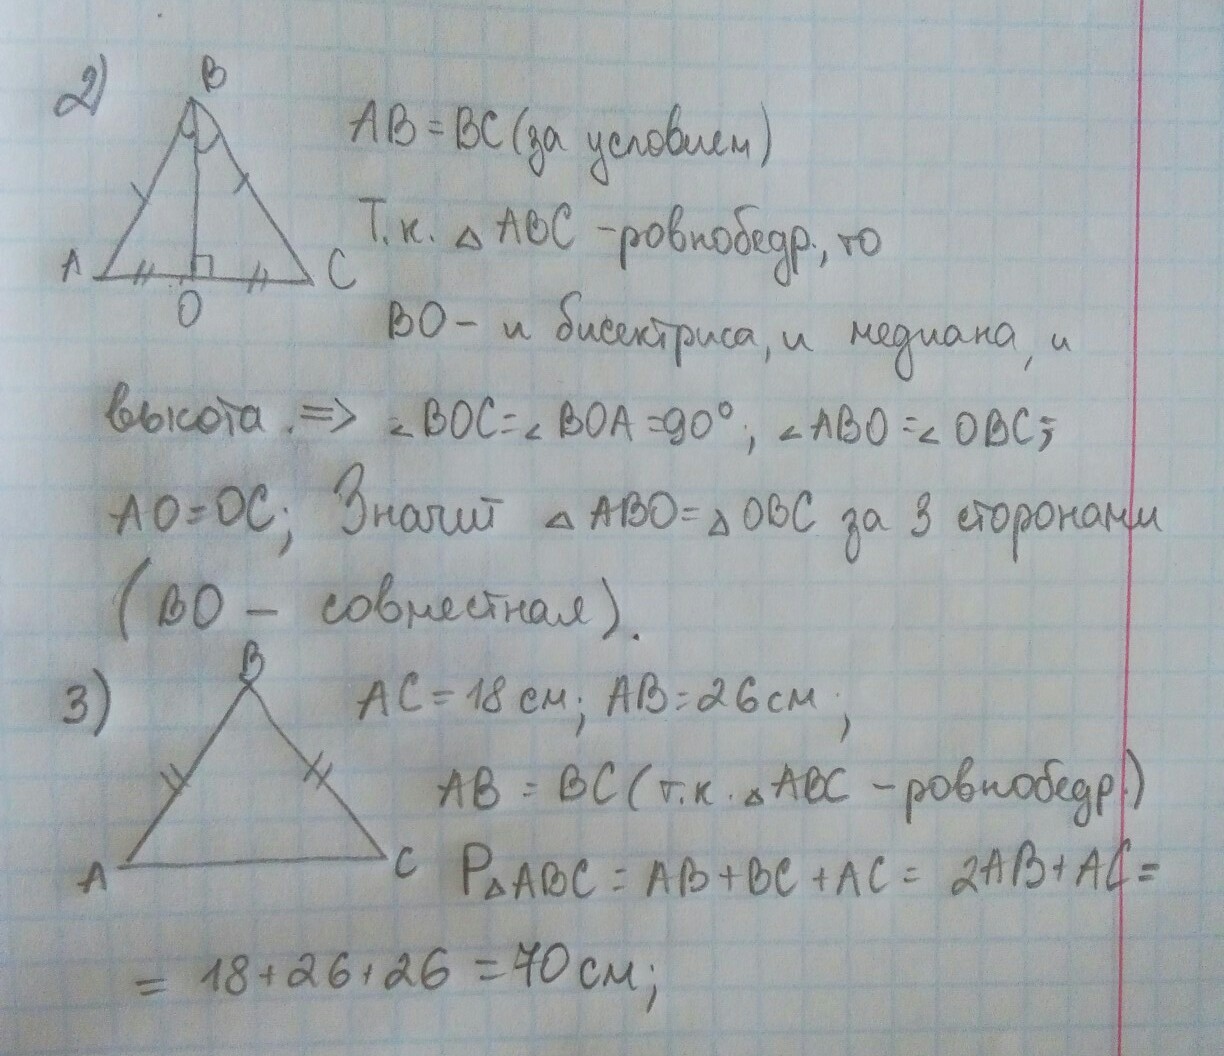 2)
B
A
O
C
AB = BC (за условием)
Т.к. △ ABC - ровнобедр., то
BO - и бисектриса, и медиана, и
высота. => ∠BOC = ∠BOA = 90°; ∠ABO = ∠OBC;
AO = OC; Значит △ABO = △OBC за 3 сторонами
(BO - совместная).
3)
B
A
C
AC = 18 см; AB = 26 см;
AB = BC (т.к. △ABC - ровнобедр.)
P△ABC = AB + BC + AC = 2AB + AC =
= 18 + 26 + 26 = 70 см;